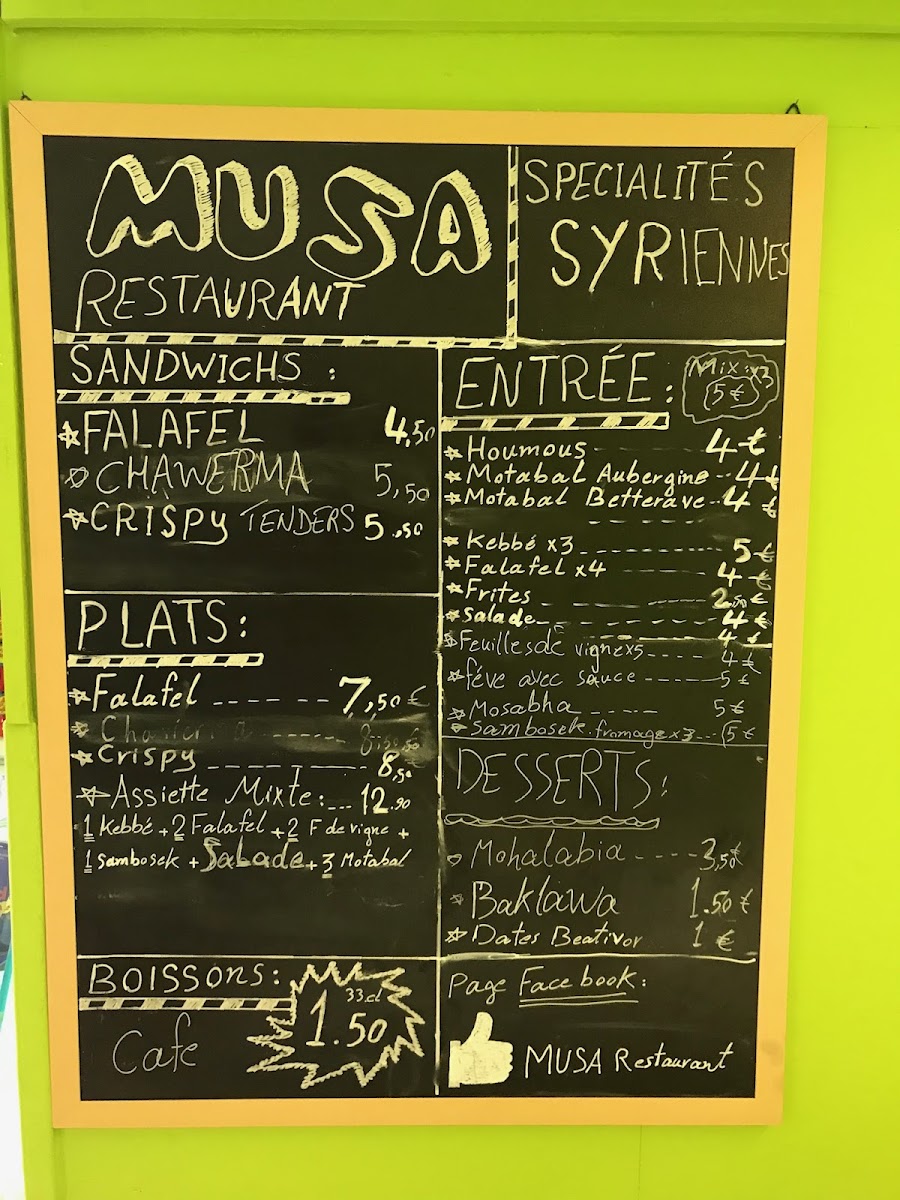 MUSA
RESTAURANT
SPECIALITÉS
SYRIENNES
SANDWICHS :
FALAFEL 4,50
CHAWERMA 5,50
CRISPY TENDERS 5.,50
PLATS:
Falafel ------ 7,50€
8,50 €
Crispy ------------ 8,50
Assiette Mixte:... 12.90
1 Kebbé + 2 Falafel + 2 F de vigne +
1 Sambosek + Salade + 3 Motabal
BOISSONS:
33.cl
1.50
Cafe
ENTRÉE:
Mix: x3
(5 €)
Houmous ------ 4 €
Motabal Aubergine -- 4 €
Motabal Betterave -- 4 €
Kebbé x3 ---------- 5 €
Falafel x4 ------ 4 €
Frites ------ 2.50 €
Salade ------ 4 €
4 €
Feuilles de vigne x5 ---- 4 €
féve avec sauce ----- 5 €
Mosabha ----- 5 €
Sambosek.fromage x3 ... (5 €
DESSERTS:
Mohalabia ----- 3,50€
Baklawa 1.50 €
Dates Beativor 1 €
Page Facebook:
MUSA Restaurant